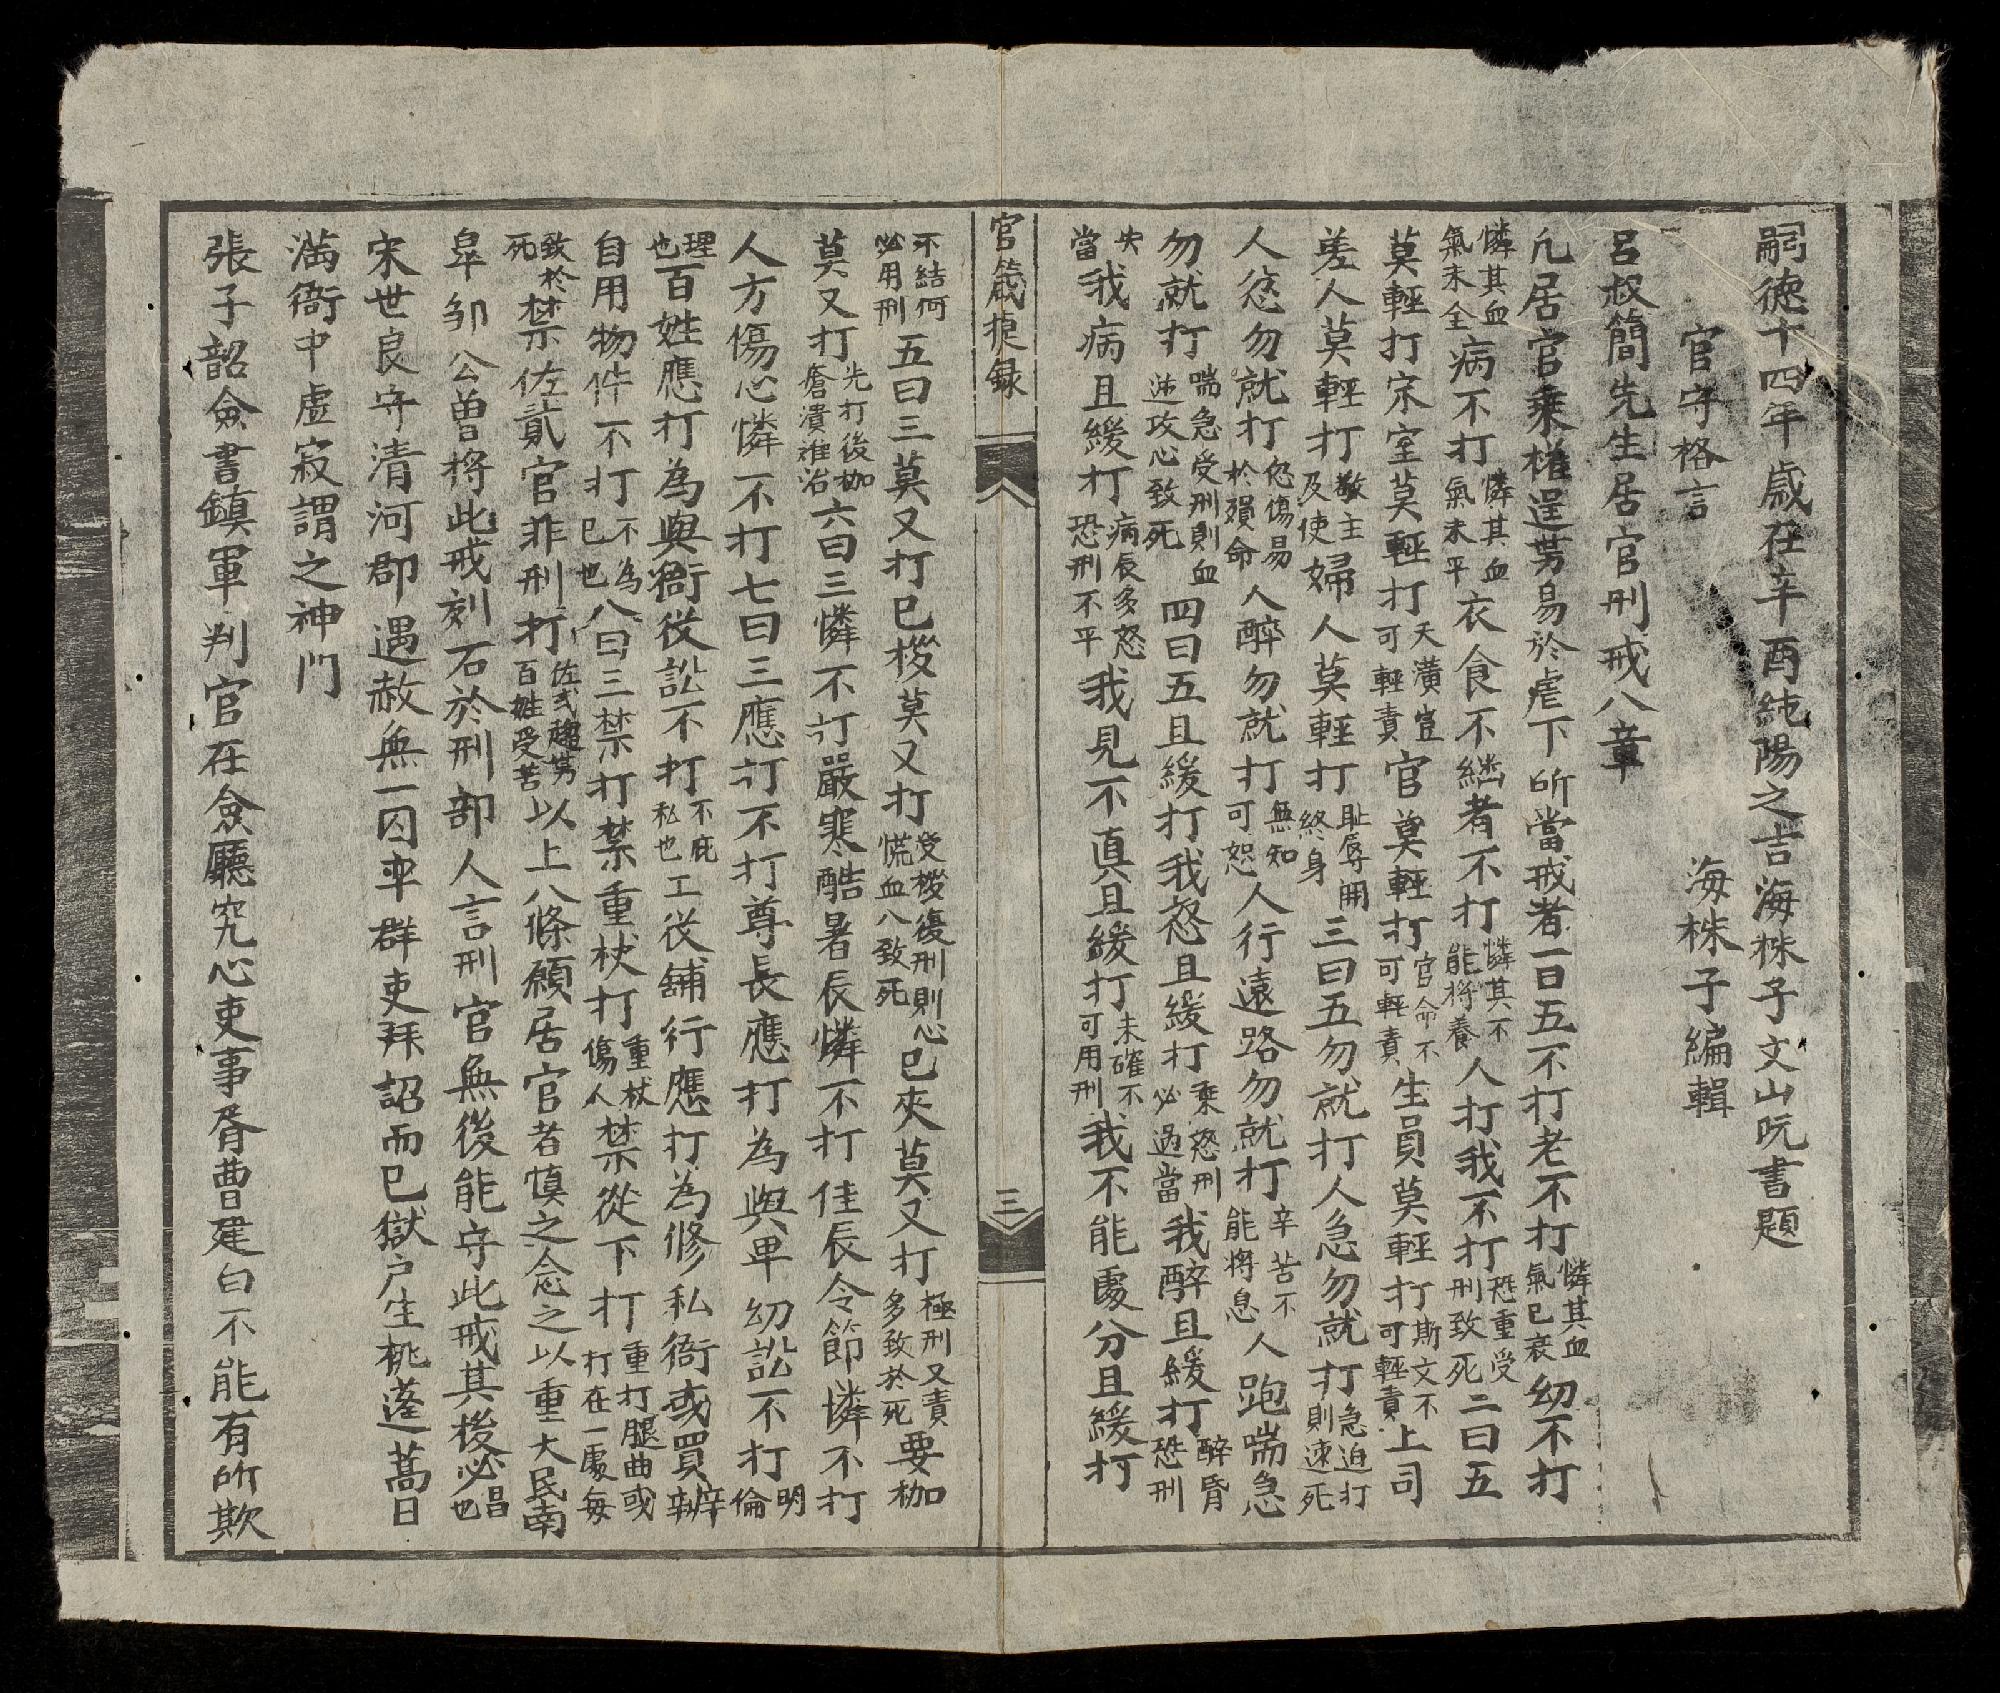 嗣德十四年歲在辛酉純陽之吉海株子文山阮書題
官守格言
海株子編輯
呂叔簡先生居官刑戒八章
凡居官乗權逞势易於虐下所當戒者一曰五不打老不打憐其血氣已衰幼不打
憐其血氣未全病不打憐其血氣未平衣食不継者不打憐其不能將養人打我不打恐重受刑致死二曰五
莫輕打宗室莫輕打天潢豈可輕責官莫輕打官命不可輕責生員莫輕打斯文不可輕責上司
差人莫輕打敬主及使婦人莫輕打耻辱関終身三曰五勿就打人急勿就打急迫打則速死
人忿勿就打忿傷易於殞命人醉勿就打無知可恕人行遠路勿就打辛苦不能將息人跑喘急
勿就打喘急受刑則血逆攻心致死四曰五且緩打我怒且緩打乗怒刑必過當我醉且緩打醉昏恐刑
失當我病且緩打病辰多怒恐刑不平我見不真且緩打未確不可用刑我不能處分且緩打
官箴捷録
三
不結何必用刑五曰三莫又打已桚莫又打受桚復刑則心慌血八致死已夾莫又打極刑又責多致於死要枷
莫又打先打後枷瘡潰難治六曰三憐不打嚴寒酷暑辰憐不打佳辰令節憐不打
人方傷心憐不打七曰三應打不打尊長應打為與卑幼訟不打明倫
理也百姓應打為與衙役訟不打不庇私也工役舖行應打為修私衙或買辦
自用物件不打不為已也八曰三禁打禁重杖打重杖傷人禁從下打重打腿曲或打在一處每
致於死禁佐貳官非刑打佐弍趨势百姓受苦以上八條願居官者慎之念之以重大民南
皐邹公曽將此戒刻石於刑部人言刑官無後能守此戒其後必昌也
宋世良守清河郡遇赦無一囚率群吏拜詔而已獄户生桃蓬蒿日
滿衙中虛寂謂之神門
張子韶僉書鎮軍判官在僉廳究心吏事胥曹建白不能有所欺